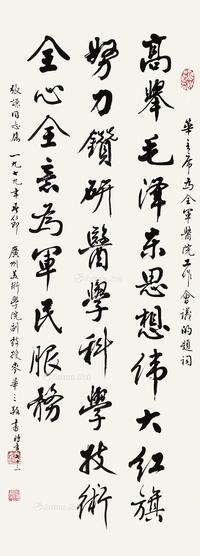 華主席為全軍醫院工作會議的題詞
高舉毛泽东思想伟大红旗
努力鑽研醫學科學技術
全心全意為軍民服務
張謙同志属 一九七九年春節 廣州美術學院副教授麥華三敬書